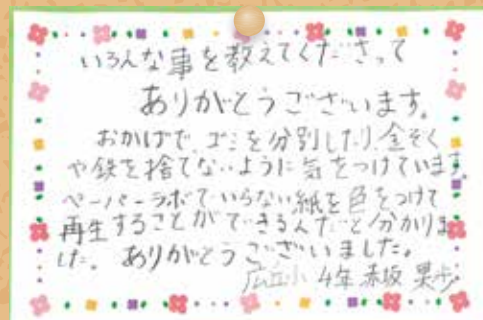 いろんな事を教えてくださって
ありがとうございます。
おかげで、ゴミを分別したり、金ぞく
や鉄を捨てないように気をつけています。
ペーパーラボでいらない紙を色をつけて
再生することができるんだと分かりま
した。ありがとうございました。
広丘小 4年 赤坂 果歩